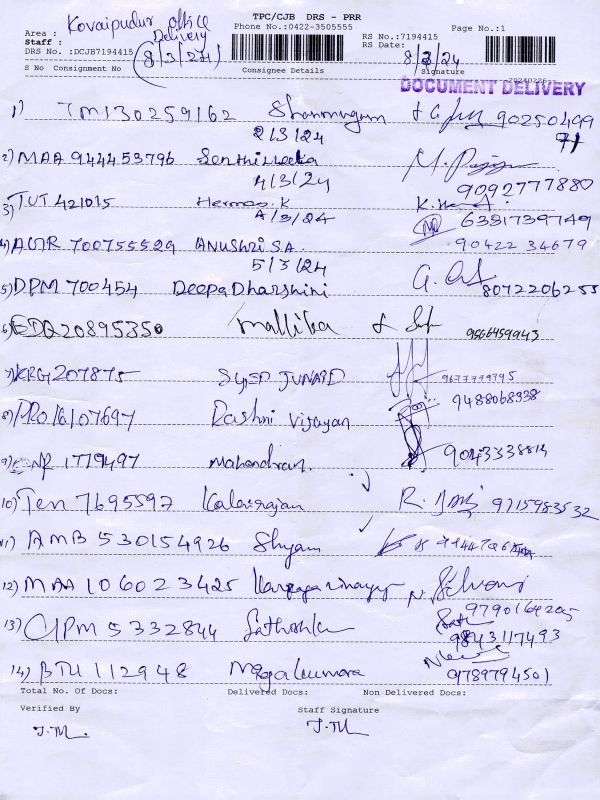 TPC/CJB DRS - PRR
Phone No.:0422-3505555
Page No.:1
Area : Kovaipudur Office
Delivery
Staff :
DRS No. :DCJB7194415
(8/3/24)
RS No.:7194415
RS Date: 8/3/24
S No Consignment No Consignee Details Signature
DOCUMENT DELIVERY
1) TM130259162 Shanmugam 90250499
71
2/3/24
2) MAA 944453796 Senthilleela
4/3/24 9092777880
3) TUT 421015 Hermas.K
4/3/24 6381739749
4) AUR 700755529 ANUSHRI S.A. 90422 34679
5/3/24
5) DPM 700454 Deepa Dharshini 8072206255
6) EDQ 20895350 Mallika 9566459943
7) KRG 207875 SYED JUNAID 9677779795
8) PRO16107697 Rashni Vijayan 9488068338
9) 1779497 Mahendran. 9043338814
10) Ten 7695597 Kalairajan 9715983532
11) AMB 530154926 Shyam
12) MAA 106023425 Karpaga vinayag
9790169205
13) 5332844 Sathish 9843117493
14) BTU 112948 Megakumara 9789794501
Total No. Of Docs: Delivered Docs: Non Delivered Docs:
Verified By Staff Signature